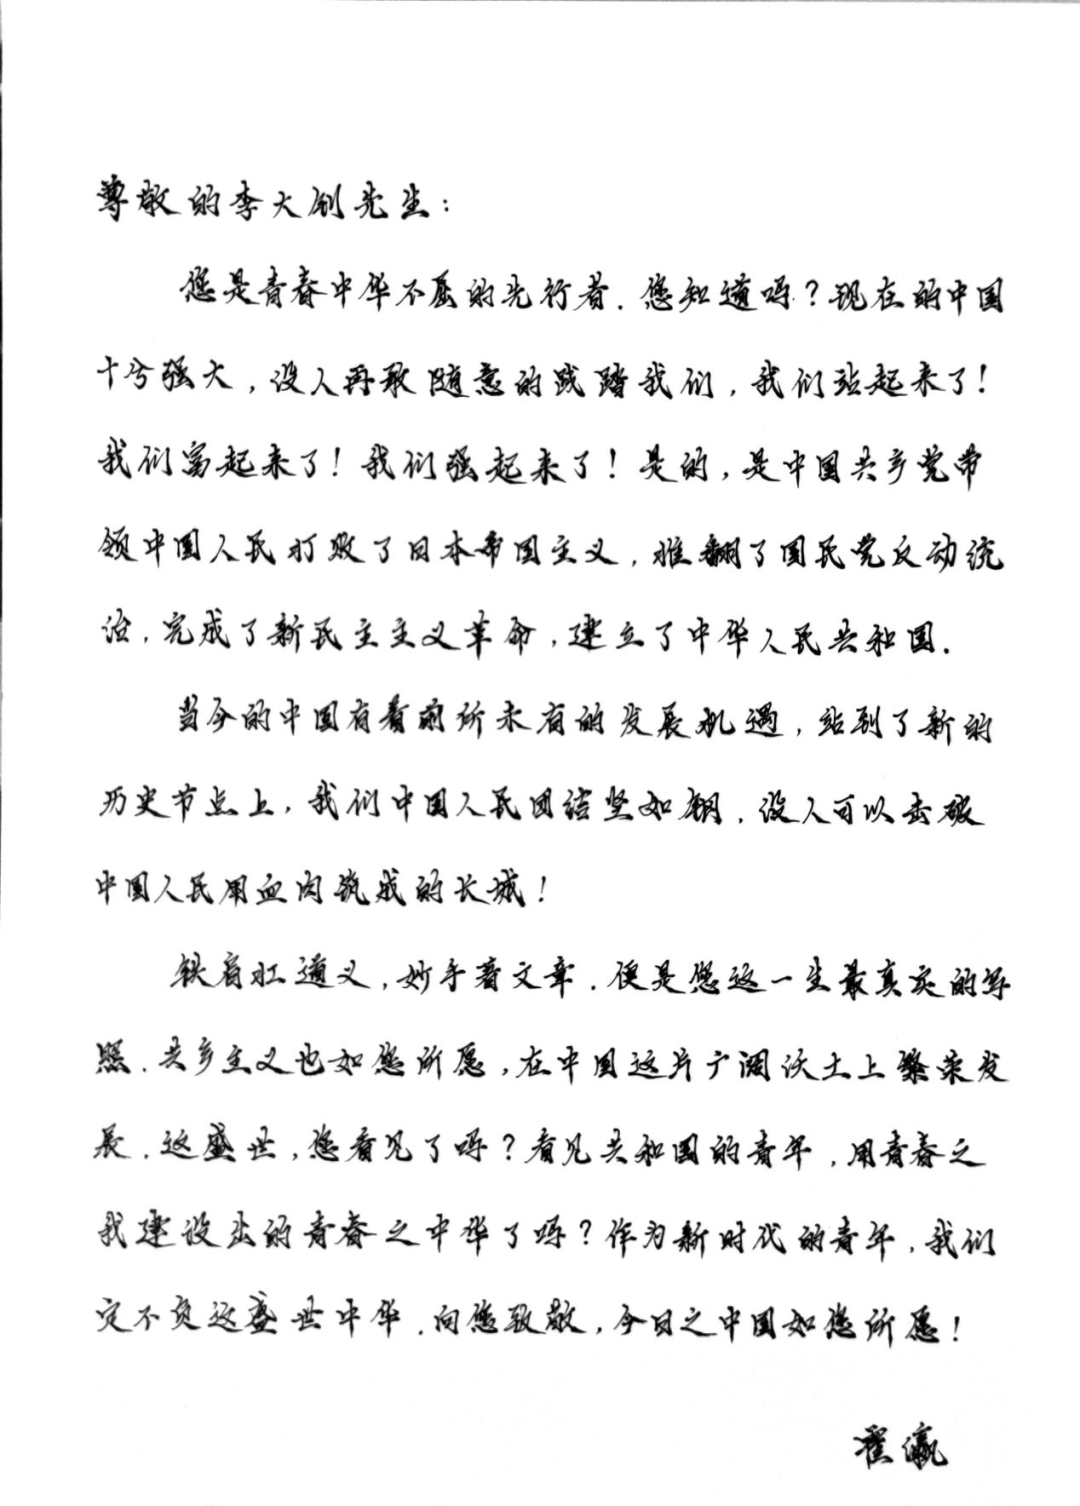 尊敬的李大钊先生：
您是青春中华不屈的先行者．您知道吗？现在的中国
十分强大，没人再敢随意的践踏我们，我们站起来了！
我们富起来了！我们强起来了！是的，是中国共产党带
领中国人民打败了日本帝国主义，推翻了国民党反动统
治，完成了新民主主义革命，建立了中华人民共和国．
当今的中国有着前所未有的发展机遇，站到了新的
历史节点上，我们中国人民团结坚如钢．没人可以击破
中国人民用血肉筑成的长城！
铁肩扛道义，妙手著文章．便是您这一生最真实的写
照．共产主义也如您所愿，在中国这片广阔沃土上繁荣发
展．这盛世，您看见了吗？看见共和国的青年，用青春之
我建设出的青春之中华了吗？作为新时代的青年，我们
定不负这盛世中华．向您致敬，今日之中国如您所愿！
霍瀛